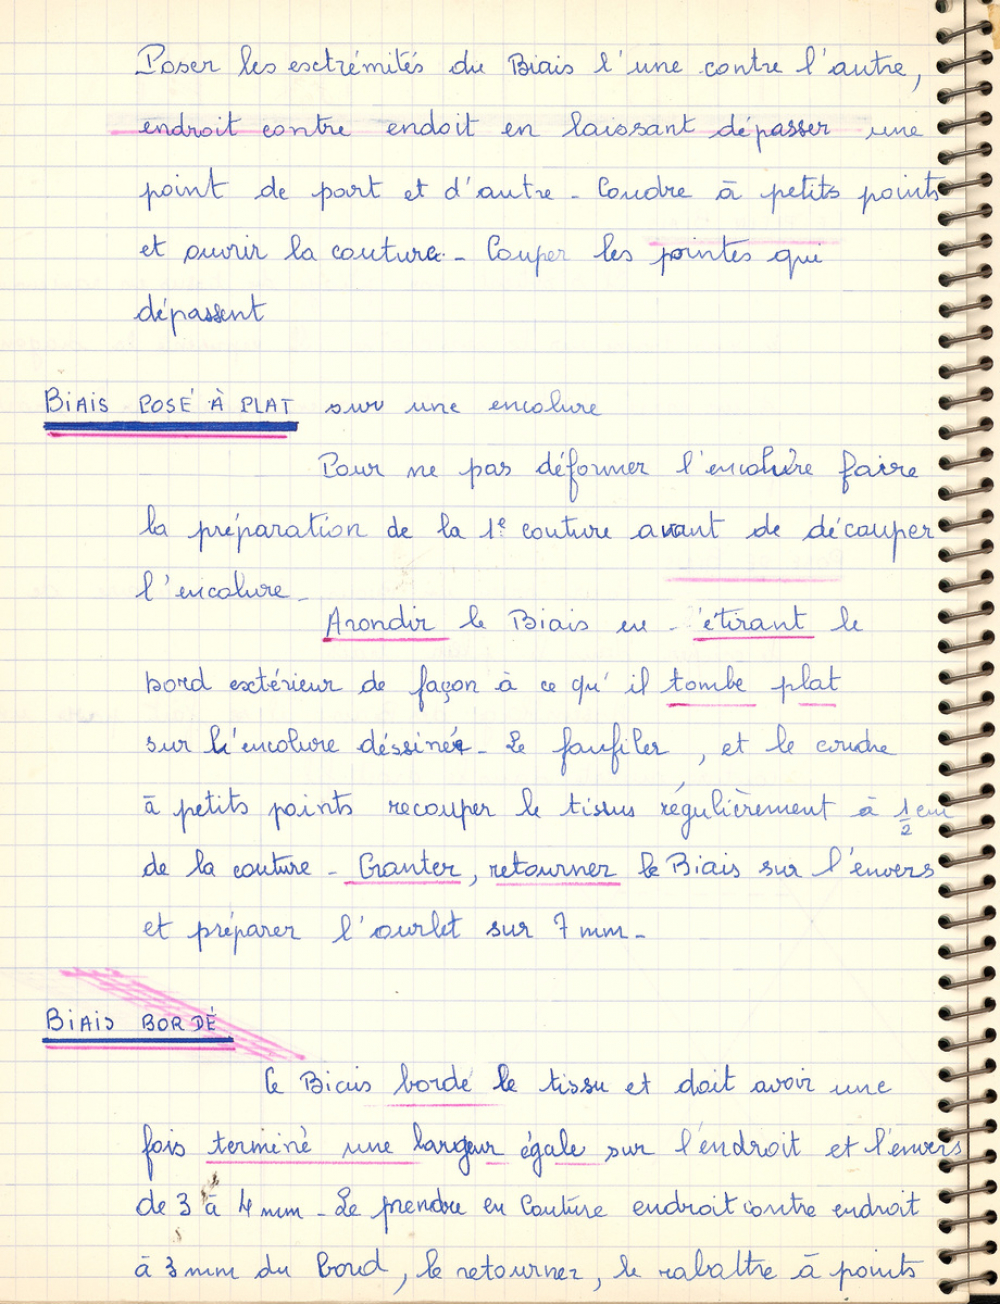 Poser les esctrémités du Biais l'une contre l'autre,
endroit contre endoit en laissant dépasser une
point de part et d'autre - Coudre à petits points
et ouvrir la couture - Couper les pointes qui
dépassent
BIAIS POSÉ À PLAT sur une encolure
Pour ne pas déformer l'encolure faire
la préparation de la 1e couture avant de découper
l'encolure -
Arondir le Biais en - étirant le
bord extérieur de façon à ce qu'il tombe plat
sur l'encolure déssinée - Le faufiler, et le coudre
à petits points recouper le tissus régulièrement à 1/2 cm
de la couture - Cranter, retourner le Biais sur l'envers
et préparer l'ourlet sur 7 mm -
BIAIS BORDÉ
Ce Biais borde le tissu et doit avoir une
fois terminé une largeur égale sur l'endroit et l'envers
de 3 à 4 mm - Le prendre en Couture endroit contre endroit
à 3 mm du bord, le retourner, le rabattre à points